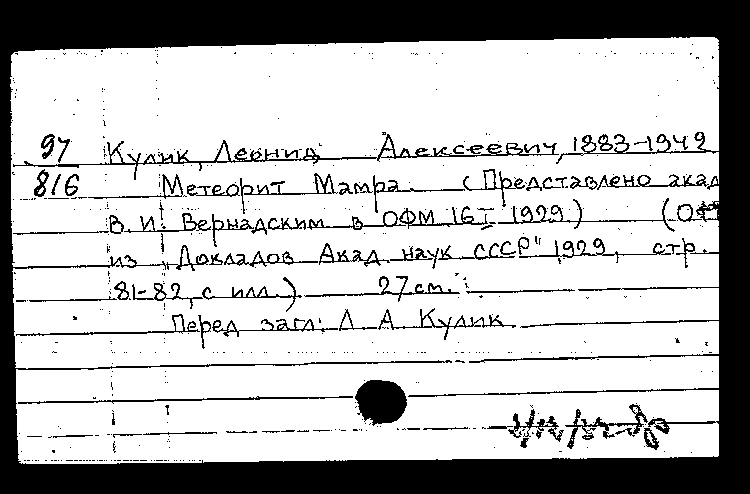 97 Кулик, Леонид Алексеевич, 1883-1942
816 Метеорит Мамра. (Представлено акад
В. И. Вернадским в ОФМ 16 I 1929.) (От
из "Докладов Акад. наук СССР" 1929, стр.
81-82, с илл.) 27 cm.
Перед загл: Л. А. Кулик.